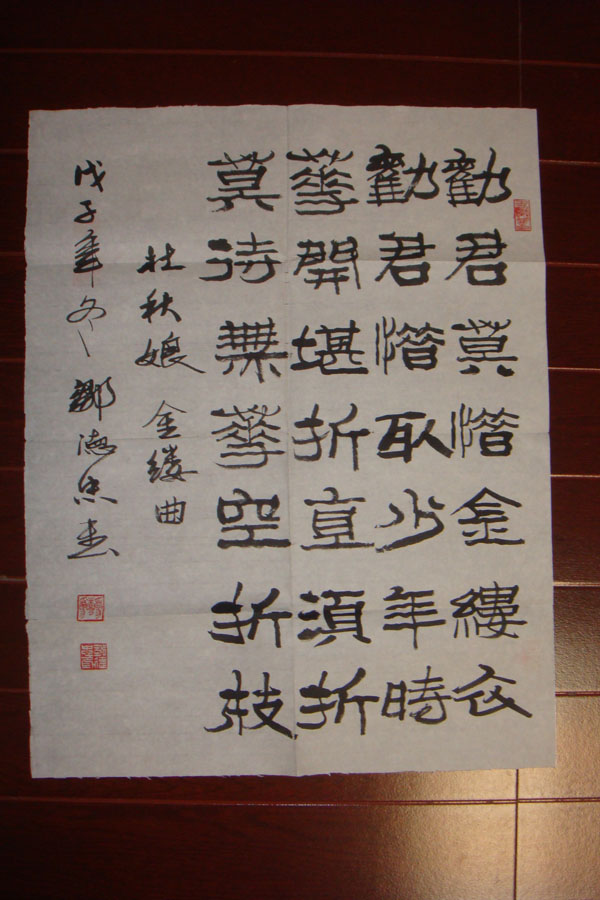 勸君莫惜金縷衣
勸君惜取少年時
華開堪折直須折
莫待無華空折枝
杜秋娘 金縷曲
戊子年冬 鄒德忠書